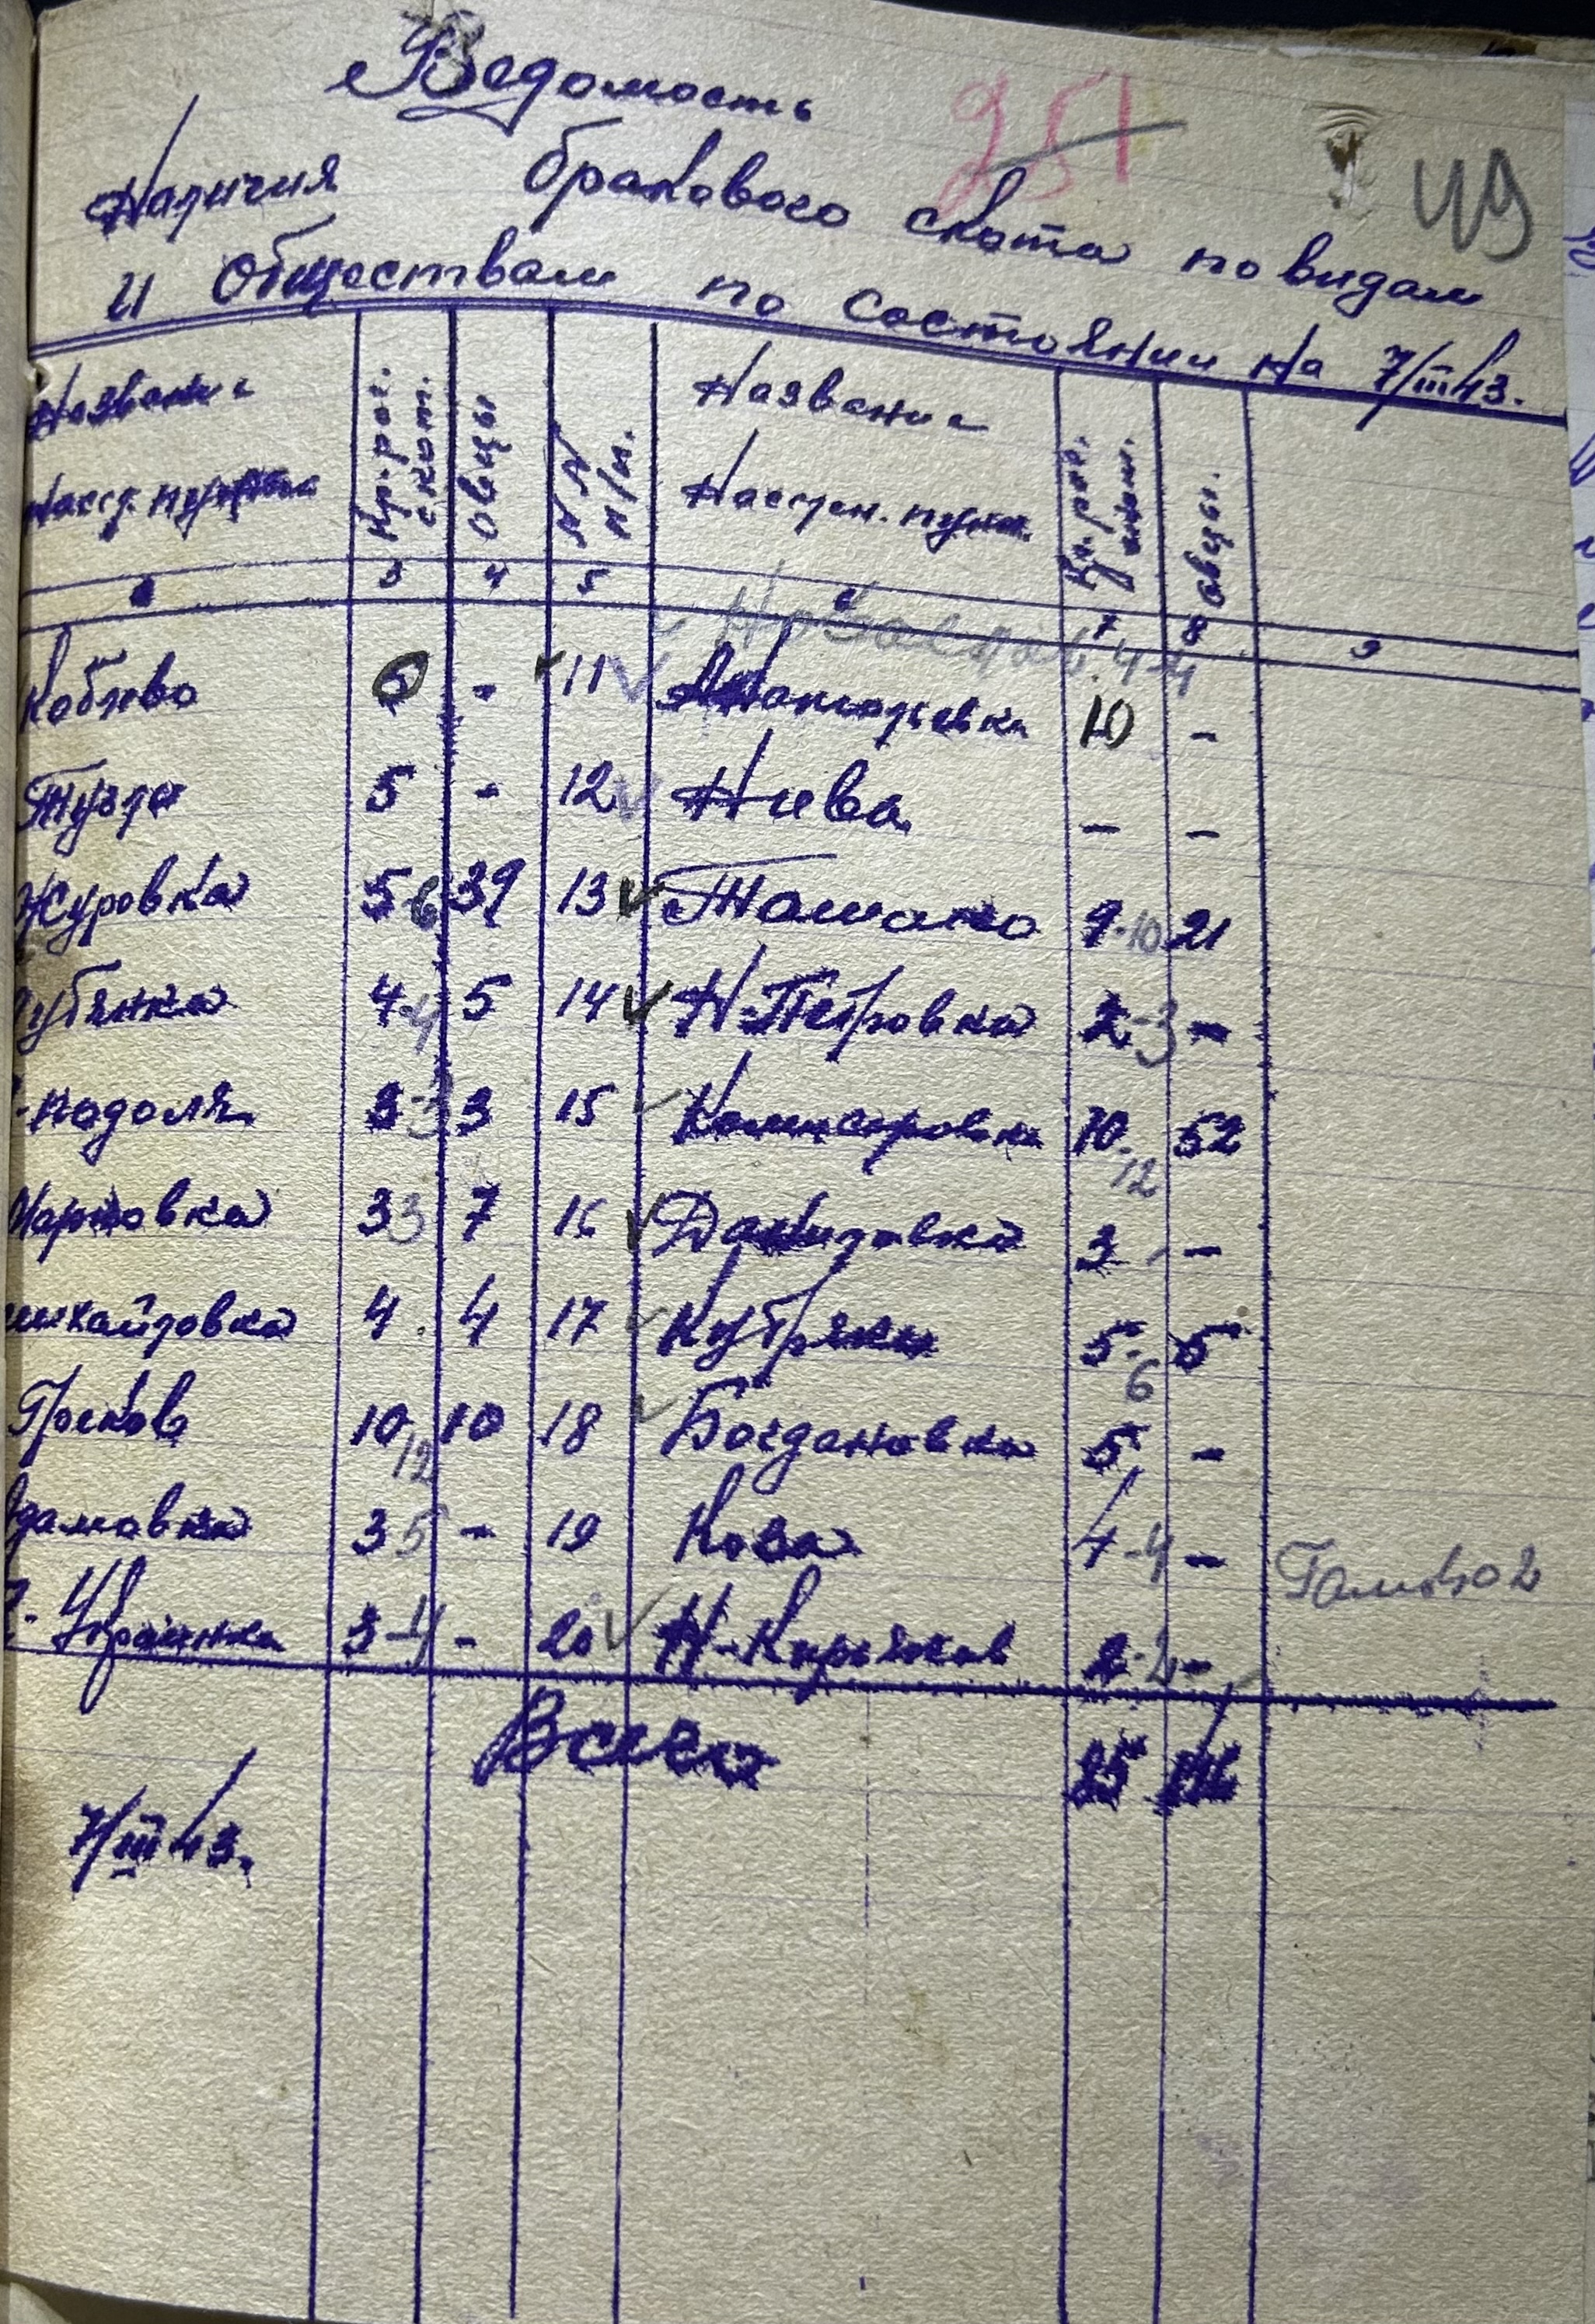 Ведомость
251
49
Наличия бракового скота по видам
и обществам по состоянии на 7/III 43.
Название насел. пункта Кр. рог. скот. Овцы №№ п/п. Название населен. пунк. Кр. рог. скот. овцы.
3 4 5 6 7 8 9
4-4
Коблево 6 - 11 Анатольевка 10 -
Тузла 5 - 12 Нива - -
Журовка 5-6 39 13 Ташино 9-10 21
4-4 5 14 Н-Петровка 2-3 -
-подоля 3-3 3 15 Комисаровка 10-12 52
Мартовка 3 3 7 16 Даниловка 3 - -
михайловка 4 4 17 Кубряки 5-6 5
Тросков 10 12 10 18 Богдановка 5 -
3 5 - 19 Коза 4-4 -
- Украинка 3-4 - 20 Н-Кирьяков 2-2 -
Всего
7/III 43.